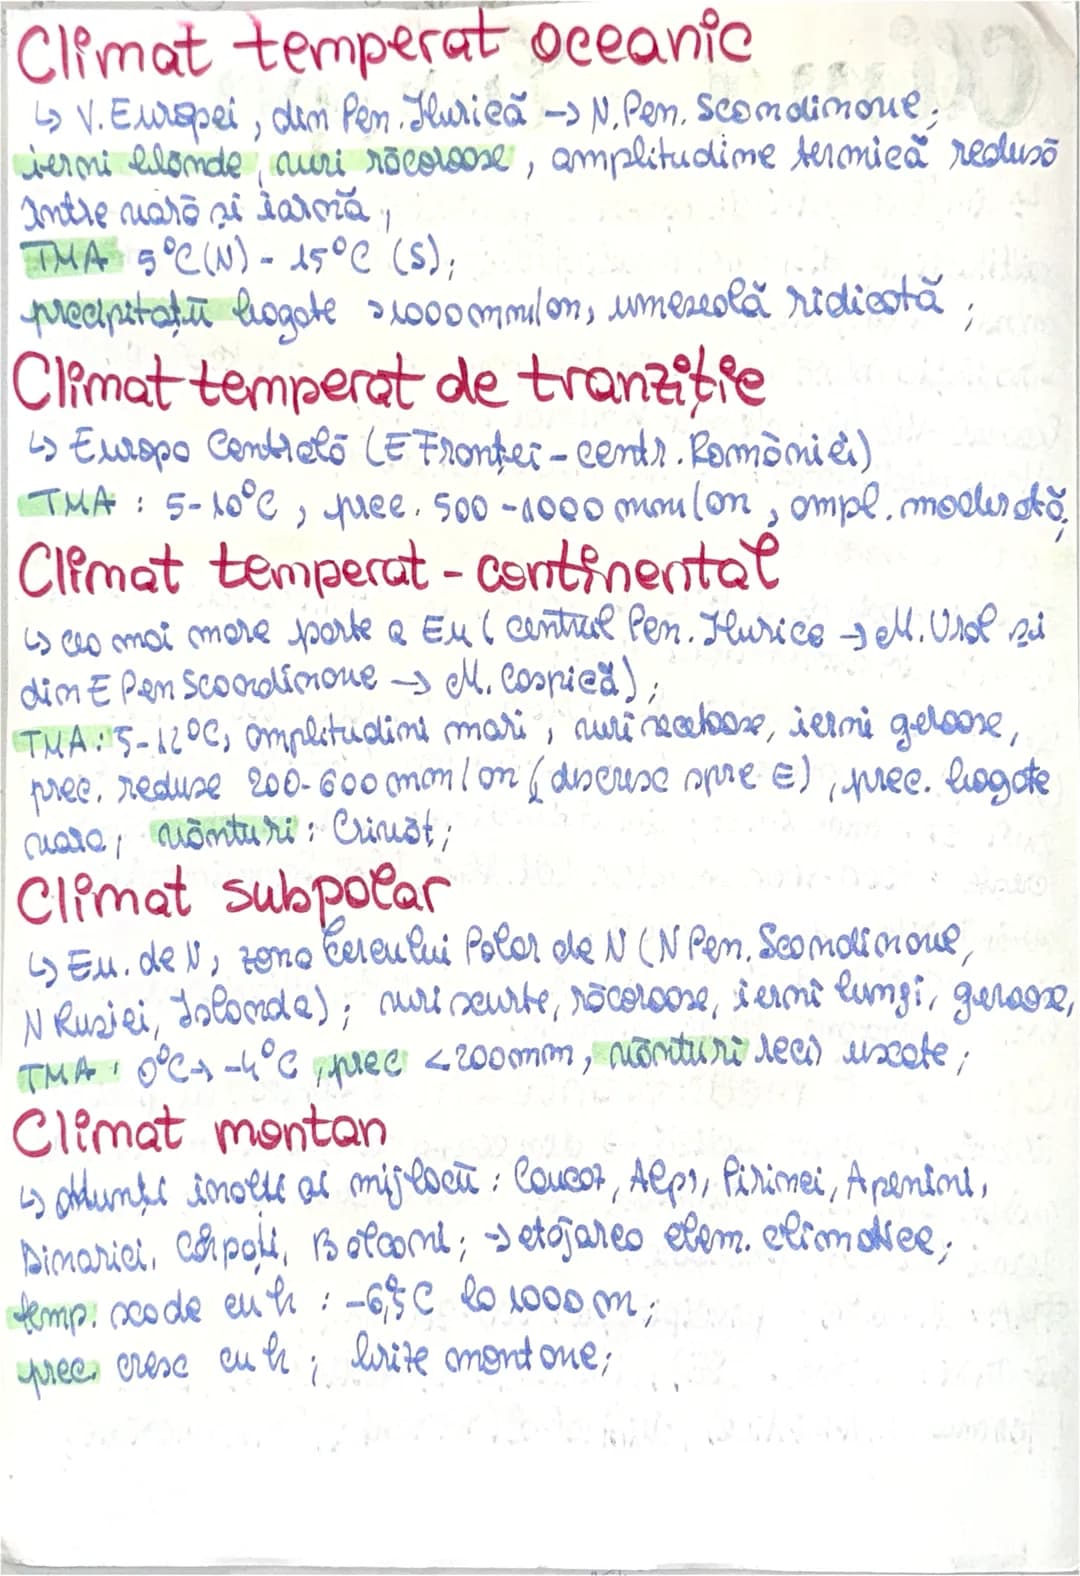 Climat temperat oceanic
↳ V. Europei, din Pen. Iberică → N. Pen. Scandinave;
ierni blânde, veri răcoroase, amplitudine termică redusă
între vară și iarnă;
TMA 5°C (N) - 15°C (S);
precipitații bogate >1000 mm/an, umezeală ridicată;
Climat temperat de tranziție
↳ Europa Centrală (E Franței - centr. României)
TMA : 5-10°C, prec. 500-1000 mm/an, ampl. moderată;
Climat temperat - continental
↳ cea mai mare parte a Eu (centrul Pen. Iberice → M. Ural și
din E Pen Scandinave → M. Caspică);
TMA: 5-12°C, amplitudini mari, veri secetoase, ierni geroase,
prec. reduse 200-600 mm/an (descresc spre E), prec. bogate
vara; vânturi: Crivăț;
Climat subpolar
↳ Eu. de N, zona Cercului Polar de N (N Pen. Scandinave,
N Rusiei, Islanda); veri scurte, răcoroase, ierni lungi, geroase,
TMA: 0°C → -4°C, prec <200mm, vânturi reci uscate;
Climat montan
↳ Munți înalți și mijlocii: Caucaz, Alpi, Pirinei, Apenini,
Dinarici, Carpați, Balcani; → etajarea elem. climatice;
temp. scade cu h : -6,5°C la 1000 m;
prec. cresc cu h; brize montane;